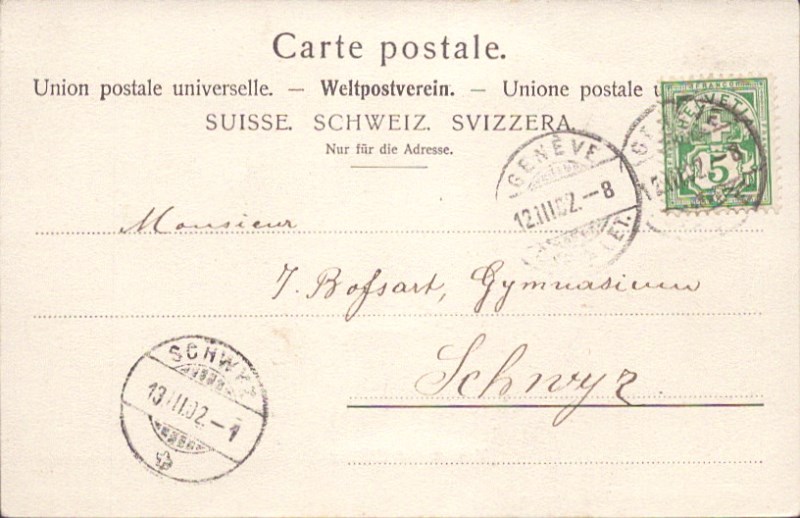 Carte postale.
Union postale universelle. — Weltpostverein. — Unione postale u
SUISSE. SCHWEIZ. SVIZZERA.
Nur für die Adresse.
FRANCO
HELVETIA
15
GENÈVE
12.III.02.–8
Monsieur
J. Bossart, Gymnasium
Schwyz.
SCHWYZ
13.III.02.–1